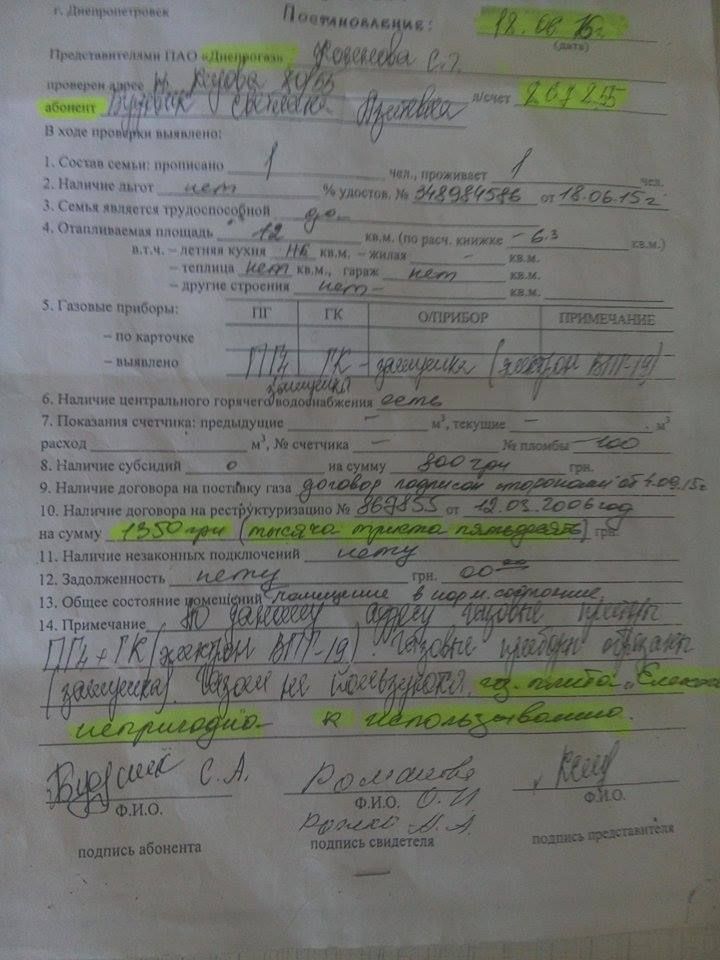 г. Днепропетровск
ПОСТАНОВЛЕНИЕ: 18.06.15г.
(дата)
Представителями ПАО «Днепрогаз»
проверен адрес 80/55
абонент Светлана л/счет 20725
В ходе проверки выявлено:
1. Состав семьи: прописано 1 чел., проживает 1 чел.
2. Наличие льгот нет % удостов. № 948984586 от 18.06.15г
3. Семья является трудоспособной да
4. Отапливаемая площадь 12 кв.м. (по расч. книжке - 6.3 кв.м.)
в.т.ч. – летняя кухня кв.м. – жилая - кв.м.
– теплица нет кв.м., гараж нет кв.м.
– другие строения нет - кв.м.
5. Газовые приборы: ПГ ГК О/ПРИБОР ПРИМЕЧАНИЕ
– по карточке
– выявлено ПГ4 ГК - заглушка (электрон ВПГ-19)
заглушка
6. Наличие центрального горячего водоснабжения есть
7. Показания счетчика: предыдущие - м³, текущие - м³
расход м³, № счетчика - № пломбы - 100
8. Наличие субсидий 0 на сумму 800 грн грн.
9. Наличие договора на поставку газа договор подписан сторонами от
10. Наличие договора на реструктуризацию № 867855 от 12.03.2006 год
на сумму 1350 грн (тысяча триста пятьдесят) грн.
11. Наличие незаконных подключений нету
12. Задолженность нету грн. 00
13. Общее состояние помещений помещение в норм. состоянии.
14. Примечание По данному адресу газовые приборы
ПГ4 + ГК (электрон ВПГ-19). Газовые приборы обрезаны
(заглушка). Газом не пользуются. плита
непригодна к использованию.
С. А. Романова
Ф.И.О. Ф.И.О. О.И Ф.И.О.
А.А.
подпись абонента подпись свидетеля подпись представителя